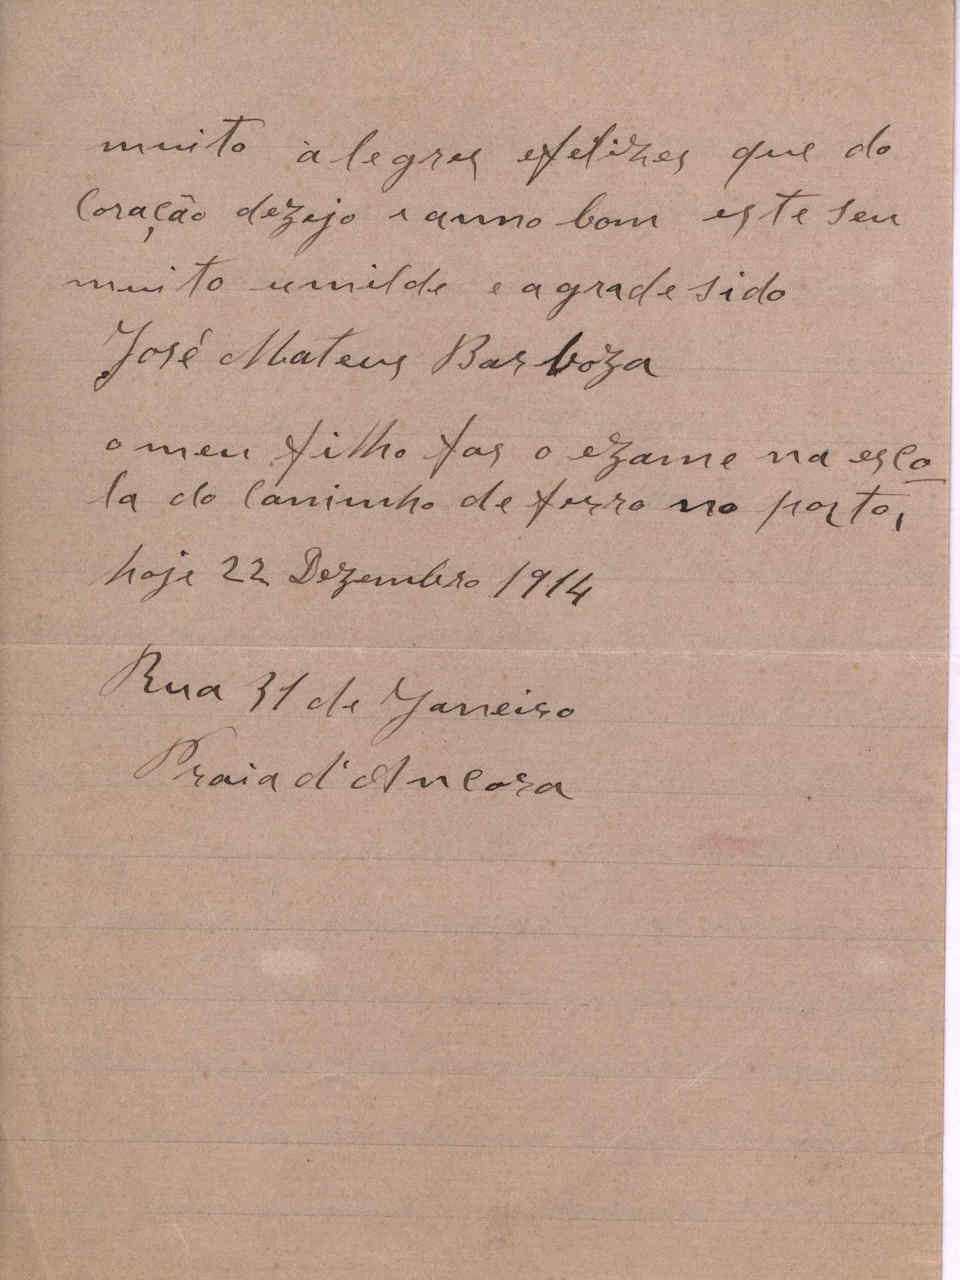 muito alegres efelizes que do
Coração dezejo e anno bom este seu
muito umilde e agradesido
José Mateus Barboza
o meu filho fas o ezame na esco
la do Caminho de ferro no porto,
hoje 22 Dezembro 1914
Rua 31 de Janeiro
Praia d'Ancora